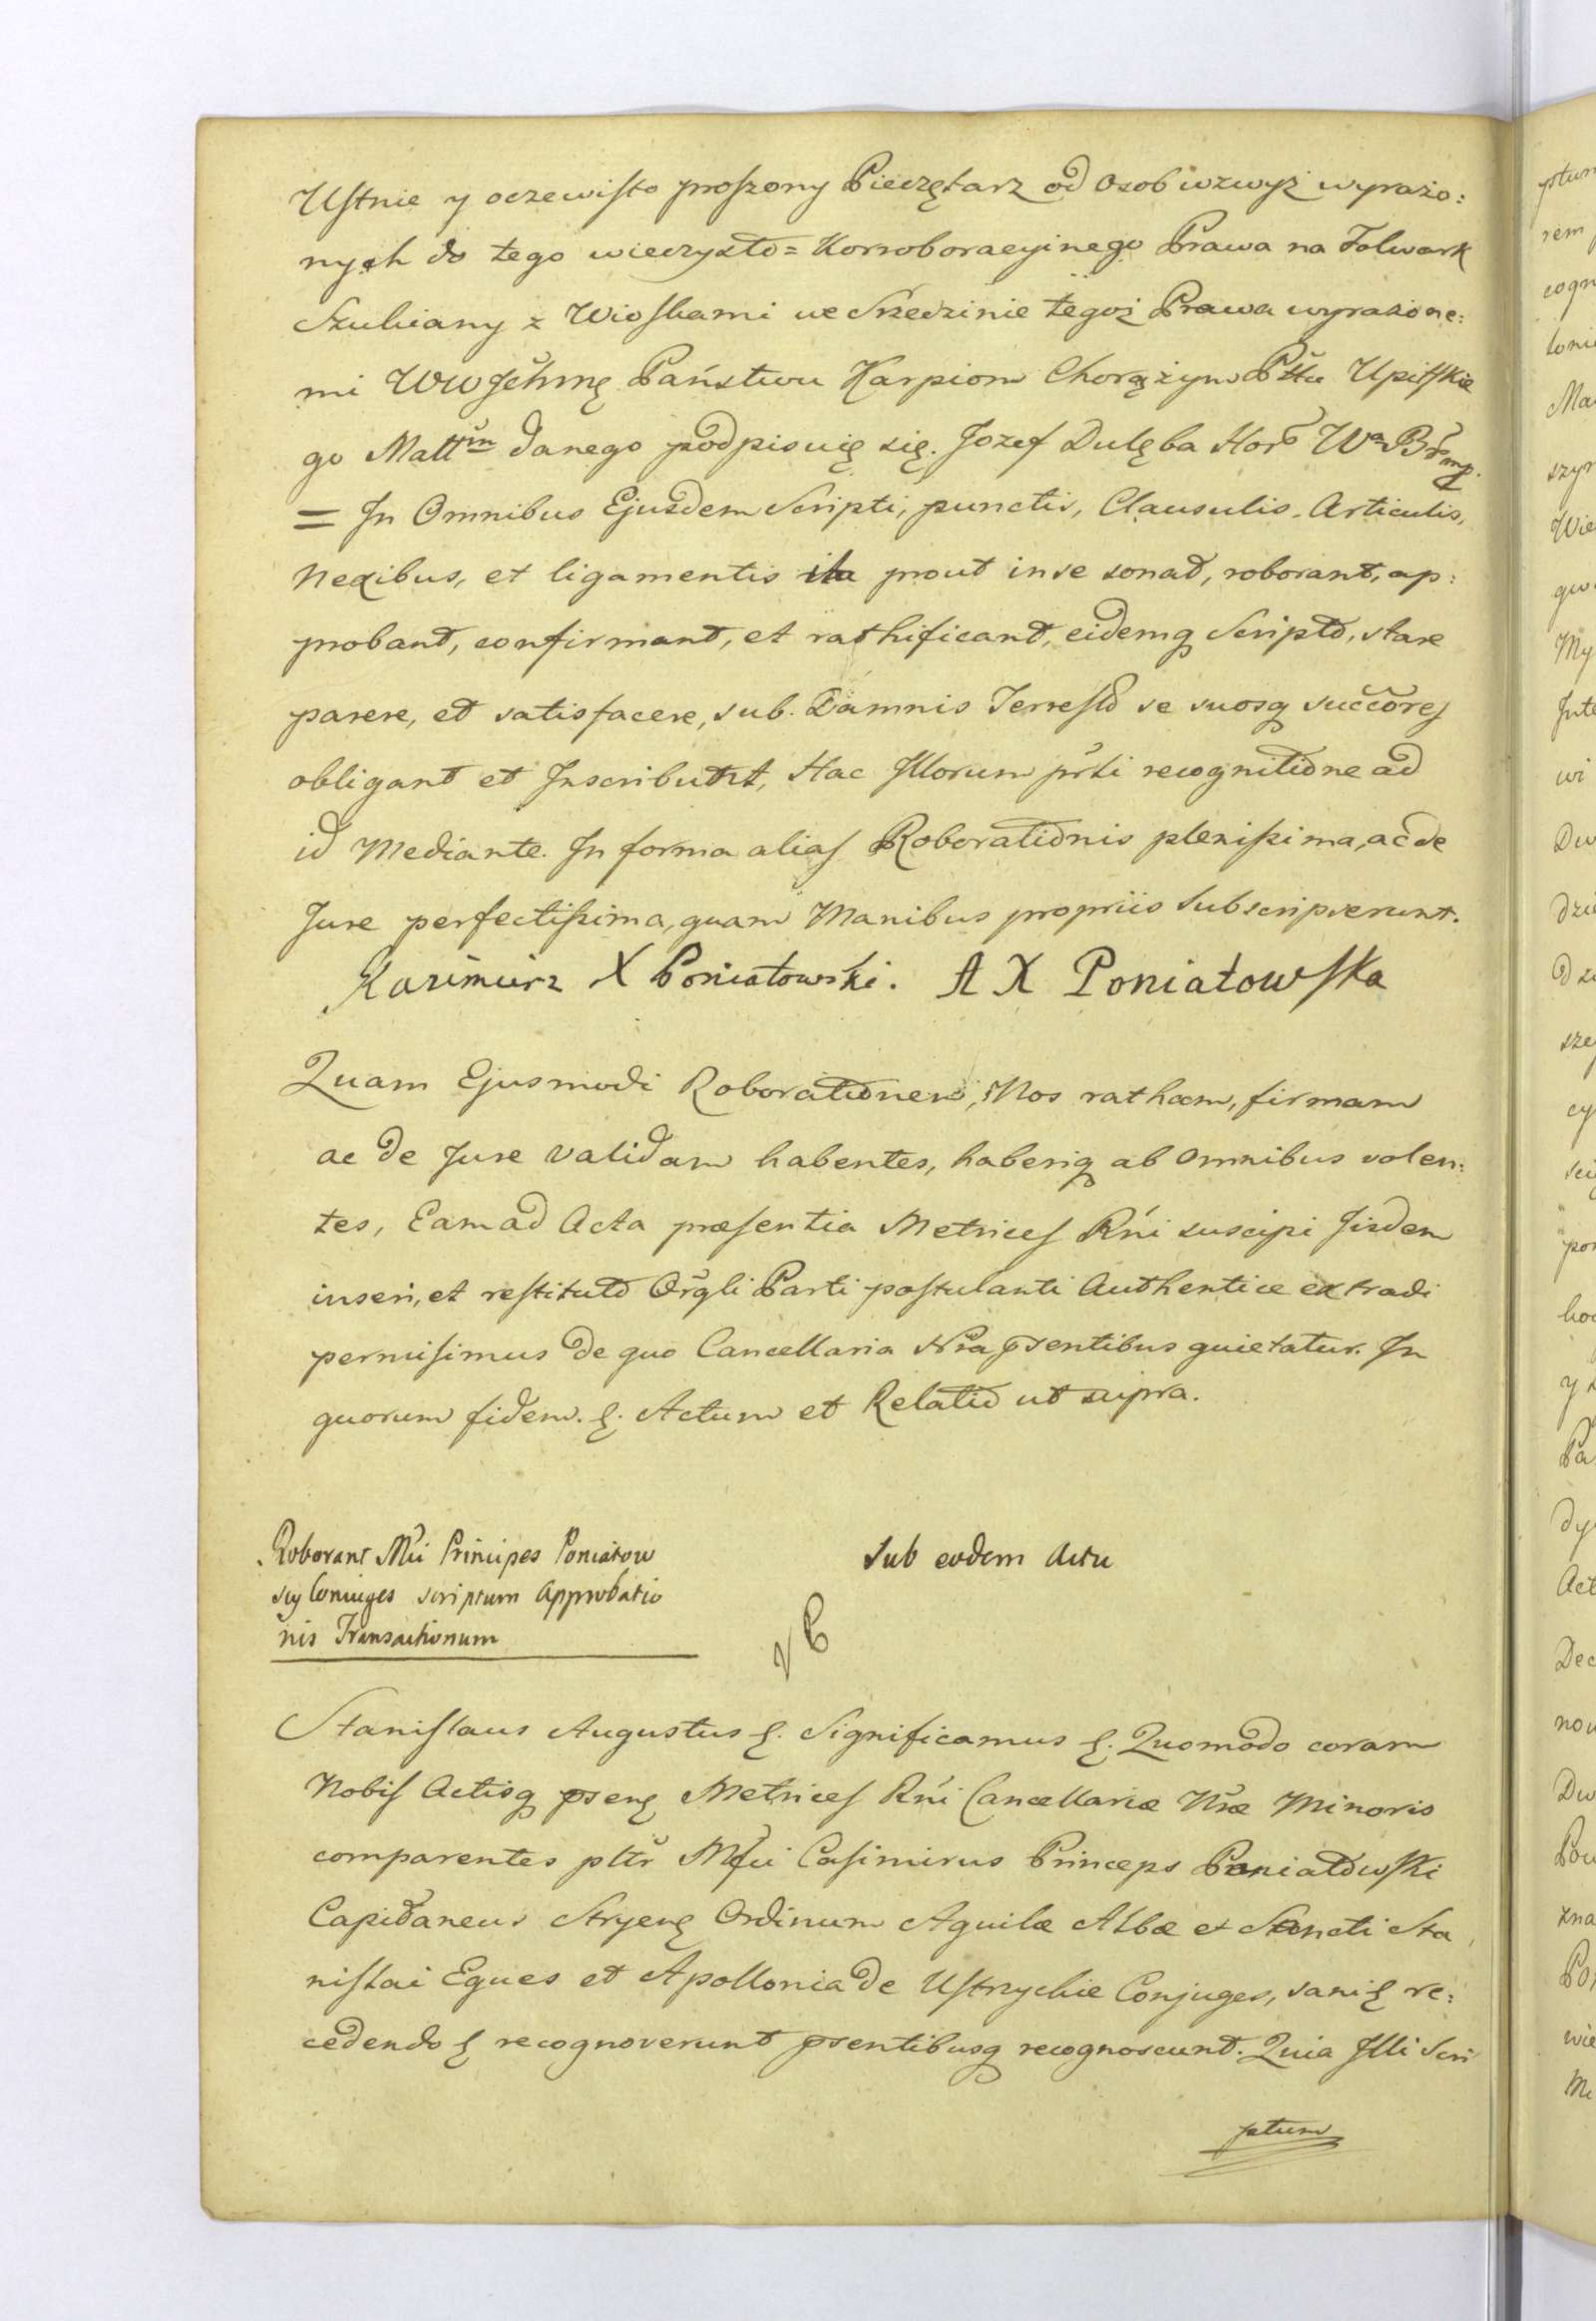 Ustnie y oczewisto proszony Pieczętarz od Osob wzwyż wyrażo:
nych do tego wieczysto = Korroboracyinego Prawa na Folwark
Szukiany z Wioskami we Srzedzinie tegoż Prawa wyrażone:
mi Państwu Karpiom Chorążym Pttu Upitskie
go Małł danego podpisuię się. Jozef Dulęba
= In Omnibus Ejusdem Scripti, punctis, Clausulis, Articulis,
Nexibus, et ligamentis ita prout in se sonat, roborant, ap:
probant, confirmant, et rathificant, eidemq Scripto, stare
parere, et satisfacere, sub Damnis Terrestr se suosq succores
obligant et Inscribunt, Hac Illorum prsti recognitione ad
id Mediante. In forma alias Roborationis plenissima, ac de
Jure perfectissima, quam Manibus propriis subscripserunt.
Kazimierz X Poniatowski. A X Poniatowska
Quam Ejusmodi Roborationem, Nos ratham, firmam
ac de Jure validam habentes, haberiq ab omnibus volen:
tes, Eam ad Acta præsentia Metrices Rni suscipi Iisdem
inseri, et restituto Orgli Parti postulanti Authentice extradi
permisimus de quo Cancellaria Nra prsentibus quietatur. In
quorum fidem. &. Actum et Relatio ut supra.
Roborant Mci Principes Poniatow
scy Coniuges scriptum Approbatio
nis Transactionum
Sub eodem Actu
Stanislaus Augustus &. Significamus &. Quomodo coram
Nobis Actisq prsen& Metrices Rni Cancellariæ Nræ Minoris
comparentes pltr Mfci Casimirus Princeps Poniatowski
Capitaneus Stryen& Ordinum Aquilæ Albæ et Sancti Sta
nislai Eques et Apollonia de Ustrzyckie Conjuges, sani & re:
cedendo & recognoverunt prsentibusq recognoscunt. Quia Illi Scri
ptum